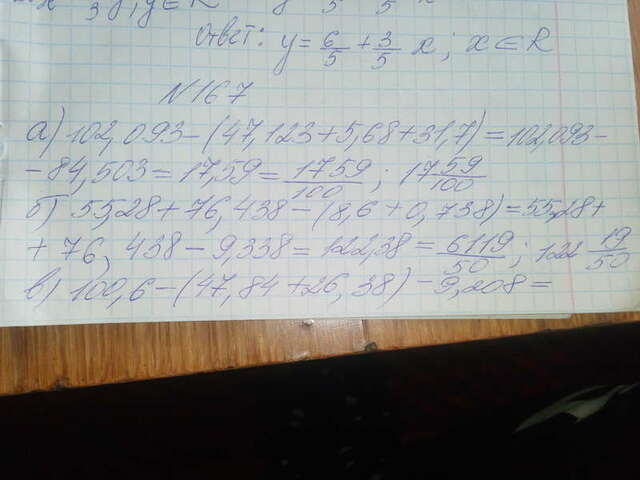 3y, y∈R
Ответ: y = 6/5 + 3/5 x; x∈R
N167
а) 102,093-(47,123+5,68+31,7)=102,093-
-84,503=17,59=1759/100; 17 59/100
б) 55,28+76,438-(8,6+0,738)=55,28+
+76,438-9,338=122,38=6119/50; 122 19/50
в) 100,6-(47,84+26,38)-9,208=